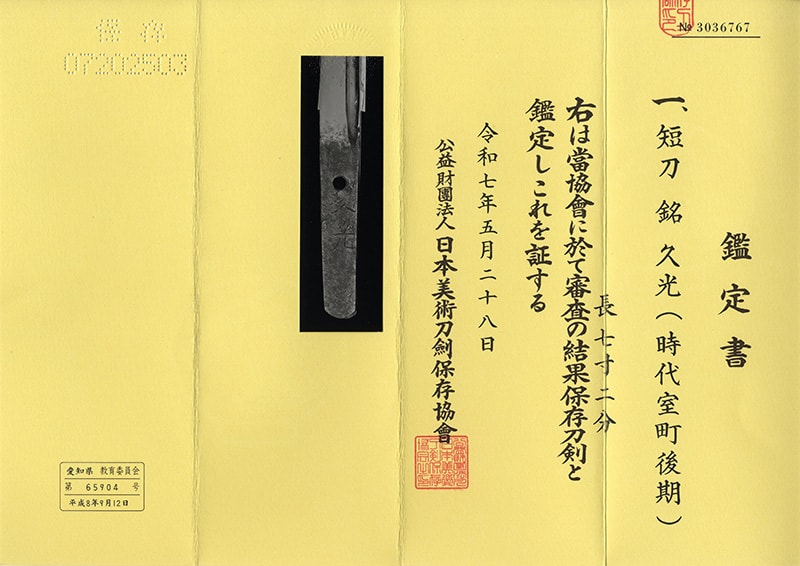 № 3036767
鑑定書
一、短刀 銘 久光（時代室町後期）
長七寸二分
右は當協會に於て審査の結果保存刀剣と
鑑定しこれを証する
令和七年五月二十八日
公益財團法人 日本美術刀劍保存協會
久光
保存
07202503
愛知県 教育委員会
第 65904 号
平成8年9月12日